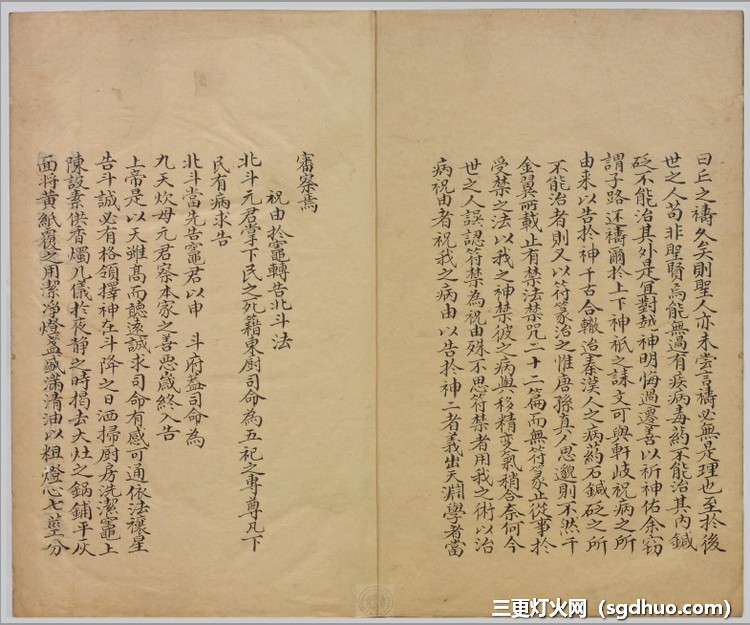 曰丘之禱久矣則聖人亦未嘗言禱必無是理也至於後
世之人苟非聖賢烏能無過有疾病毒藥不能治其內鍼
砭不能治其外是宜對越神明悔過遷善以祈神佑余竊
謂子路述禱爾於上下神祇之誄文可與軒歧祝病之所
由來以告於神千古合轍迨秦漢人之病藥石鍼砭之所
不能治者則又以符篆治之惟唐孫真人思邈則不然千
金翼所載止有禁法禁咒二十二篇而無符篆止從事於
受禁之法以我之神禁彼之病與移精變氣稍合奈何今
世之人誤認符禁為祝由殊不思符禁者用我之術以治
病祝由者祝我之病由以告於神二者義出天淵學者當
審察焉
祝由於竈轉告北斗法
北斗元君掌下民之死籍東廚司命為五祀之專尊凡下
民有病求告
北斗當先告竈君以申 斗府蓋司命為
九天炊母元君察本家之善惡歲終入告
上帝是以天雖高而聽遠誠求司命有感可通依法禳星
告斗誠必有格領擇神在斗降之日洒掃廚房洗潔竈上
陳設素供香燭几儀於夜靜之時揭去大灶之鍋鋪平灰
面將黃紙覆之用潔淨燈盞盛滿清油以粗燈心七莖分
三更灯火网（sgdhuo.com）